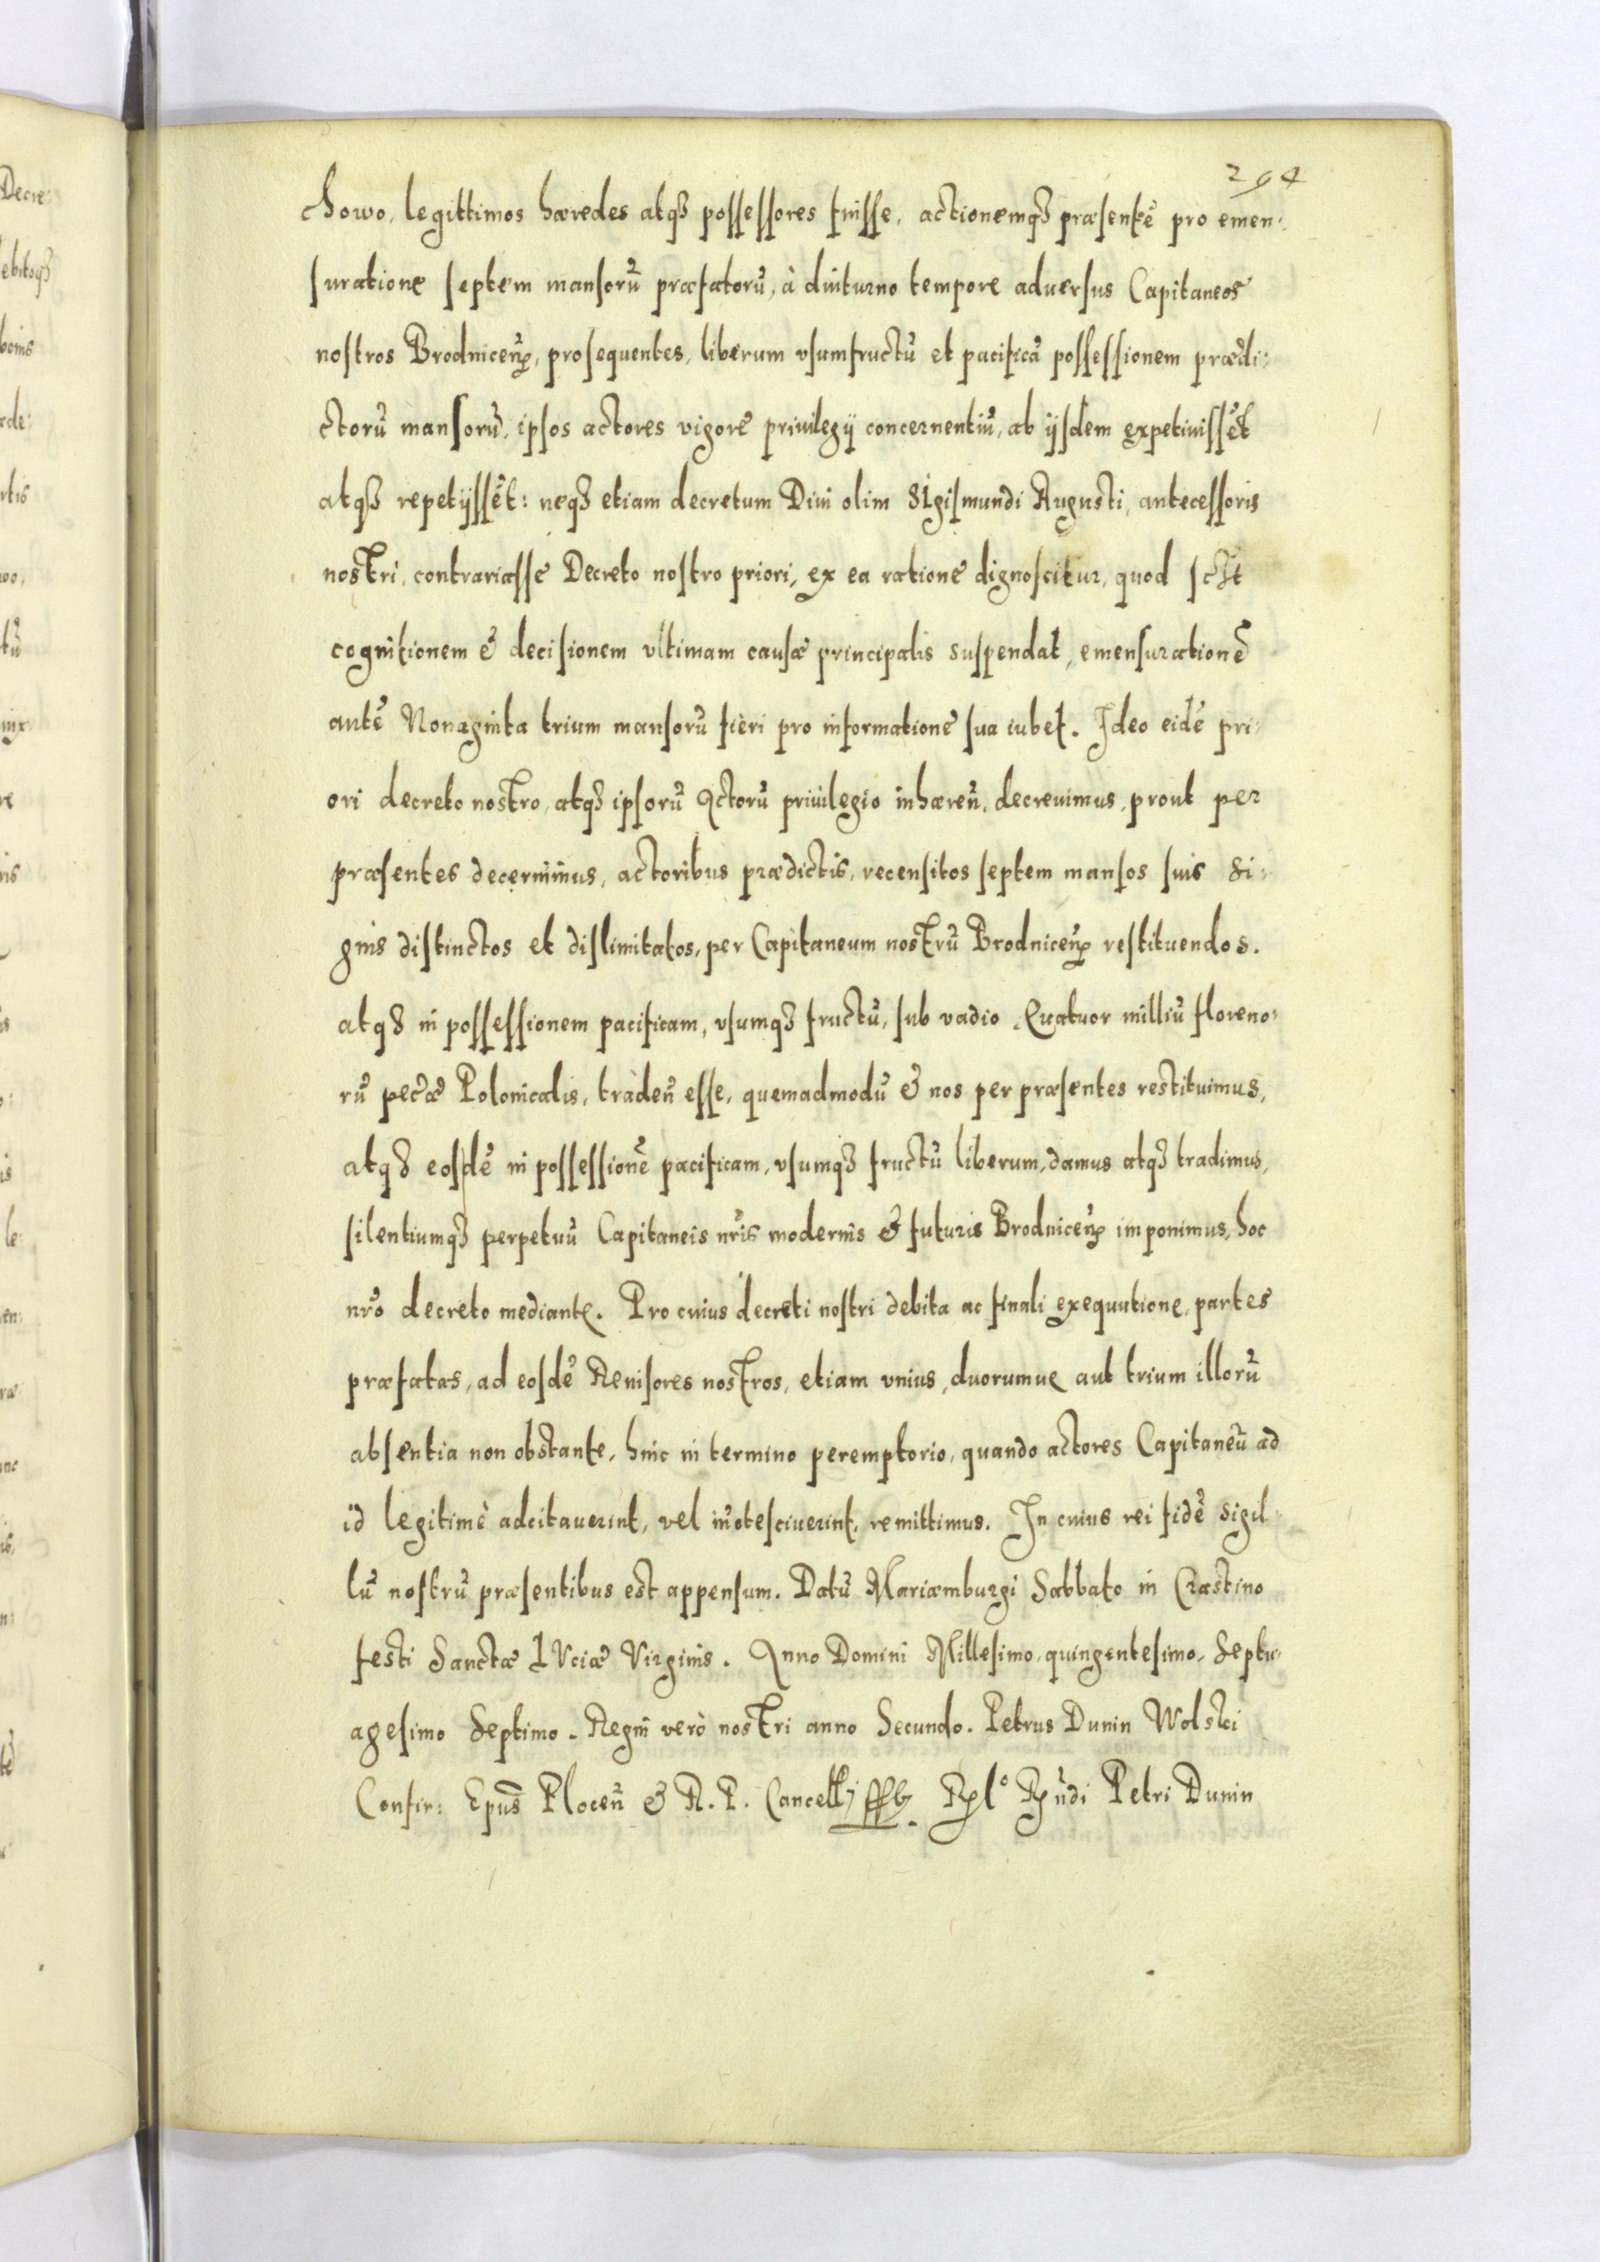 294
chowo, legittimos hæredes atqз possessores fuisse, actionemqз præsentē pro emen:
suratione septem mansorū præfatorū, à diuturno tempore aduersus Capitaneos
nostros Brodniceñ, prosequentes, liberum vsumfructū et pacificā possessionem prædi:
ctorū mansorū, ipsos actores vigore priuilegij concernentiū, ab ijsdem expetiuissēt
atqз repetijssēt: neqз etiam decretum Diui olim Sigismundi Augusti, antecessoris
nostri, contrariasse Decreto nostro priori, ex ea ratione dignoscitur, quod
cognitionem & decisionem vltimam causæ principalis suspendat, emensurationē
autē Nonaginta trium mansorū fieri pro informatione sua iubet. Ideo eidē pri:
ori decreto nostro, atqз ipsorū Actorū priuilegio inhæreñ, decreuimus, prout per
præsentes decernimus, actoribus prædictis, recensitos septem mansos suis si:
gnis distinctos et dislimitatos, per Capitaneum nostrū Brodniceñ restituendos.
atqз in possessionem pacificam, vsumqз fructū, sub vadio Quatuor milliū floreno:
rū pecæ Polonicalis, tradeñ esse, quemadmodū & nos per præsentes restituimus,
atqз eosdē in possessionē pacificam, vsumqз fructū liberum, damus atqз tradimus,
silentiumqз perpetuū Capitaneis nris modernis & futuris Brodniceñ imponimus, hoc
nro decreto mediante. Pro cuius decreti nostri debita ac finali exequutione, partes
præfatas, ad eosdē Reuisores nostros, etiam vnius, duorumue aut trium illorū
absentia non obstante, hinc in termino peremptorio, quando actores Capitaneū ad
id legitimè adcitauerint, vel iñotesciuerint, remittimus. In cuius rei fidē sigil
lū nostrū præsentibus est appensum. Datū Mariæmburgi Sabbato in Crastino
festi Sanctæ LVciæ Virginis. Anno Domini Millesimo, quingentesimo, Septu:
agesimo Septimo. Regni verò nostri anno Secundo. Petrus Dunin Wolski
Confir: Epūs Ploceñ & R. P. Cancell, Petri Dunin